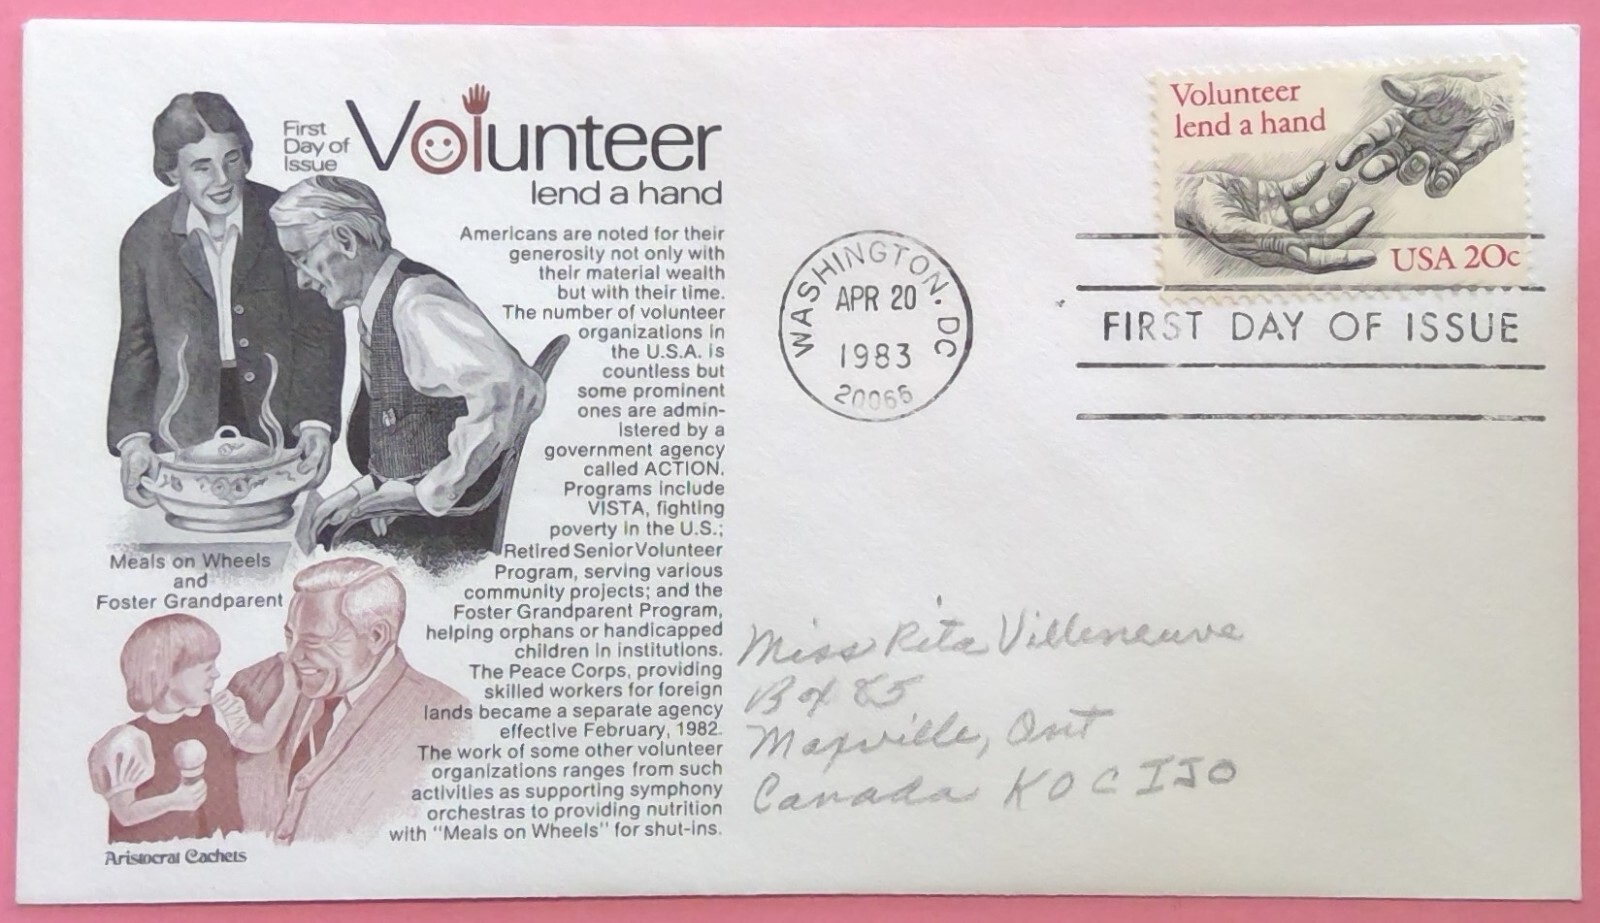 First
Day of
Issue
Volunteer
lend a hand
Americans are noted for their
generosity not only with
their material wealth
but with their time.
The number of volunteer
organizations in
the U.S.A. is
countless but
some prominent
ones are admin-
istered by a
government agency
called ACTION.
Programs include
VISTA, fighting
poverty in the U.S.;
Retired Senior Volunteer
Program, serving various
community projects; and the
Foster Grandparent Program,
helping orphans or handicapped
children in institutions.
The Peace Corps, providing
skilled workers for foreign
lands became a separate agency
effective February, 1982.
The work of some other volunteer
organizations ranges from such
activities as supporting symphony
orchestras to providing nutrition
with "Meals on Wheels" for shut-ins.
Meals on Wheels
and
Foster Grandparent
Aristocrat Cachets
WASHINGTON. DC
APR 20
1983
20066
Volunteer
lend a hand
USA 20c
FIRST DAY OF ISSUE
Miss Rita Villeneuve
Box 85
Maxville, Ont
Canada K0C IJ0